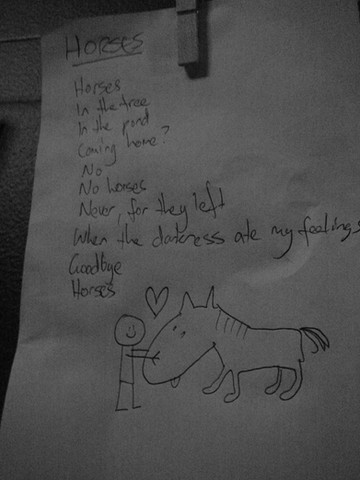 HORSES
Horses
In the tree
In the pond
Coming home?
No
No horses
Never, for they left
When the darkness ate my feelings
Goodbye
Horses